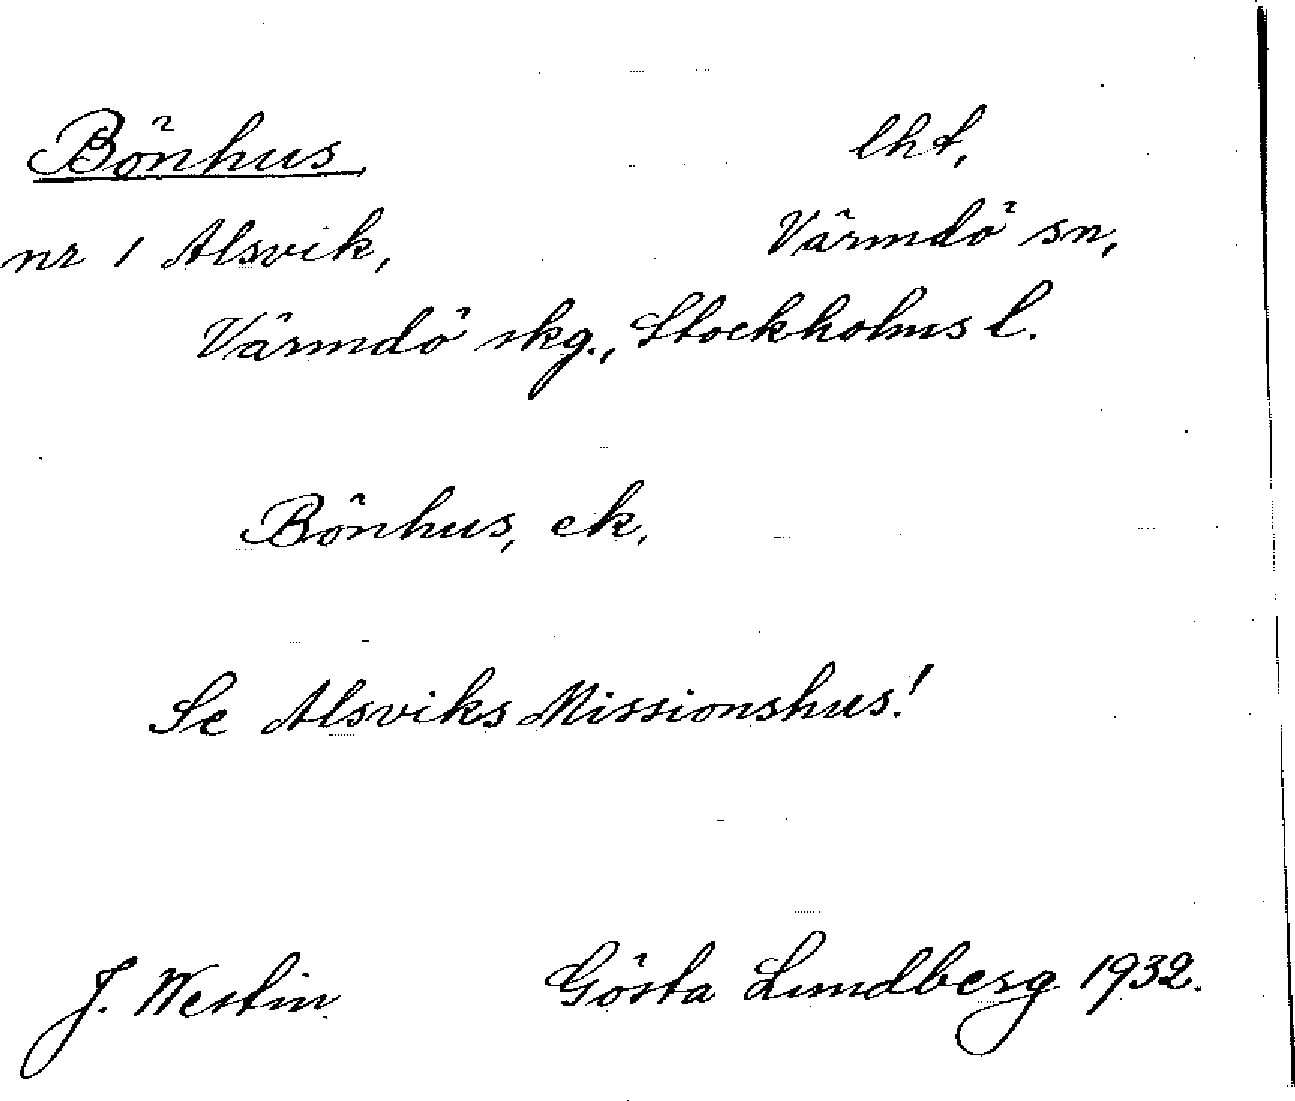 Bönhus, lht,
nr 1 Alsvik, Värmdö sn,
Värmdö skg., Stockholms l.
Bönhus, ek,
Se Alsviks Missionshus!
J. Westin Gösta Lundberg 1932.